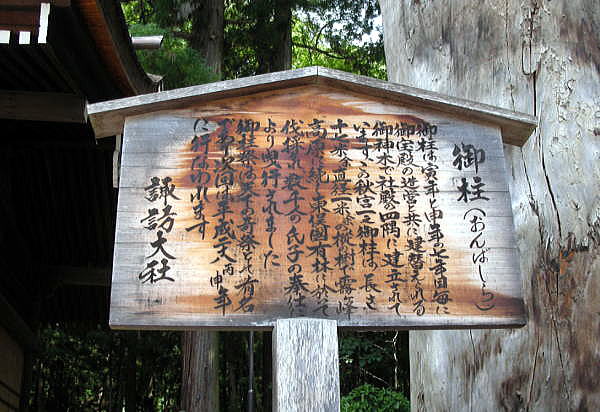 御柱（おんばしら）
御柱は寅年と申年の七年目毎に
御宝殿の造営と共に建替えられる
御神木で社殿の四隅に建立されて
います この秋宮一之御柱は 長さ
十七米余直径一米余の樅樹で霧ヶ峰
高原に続く東俣国有林に於て
伐採され数千の氏子の奉仕に
より曳行されました
御柱祭は天下の奇祭として有名
です 次回は平成 丙申年
に行なわれます
諏訪大社